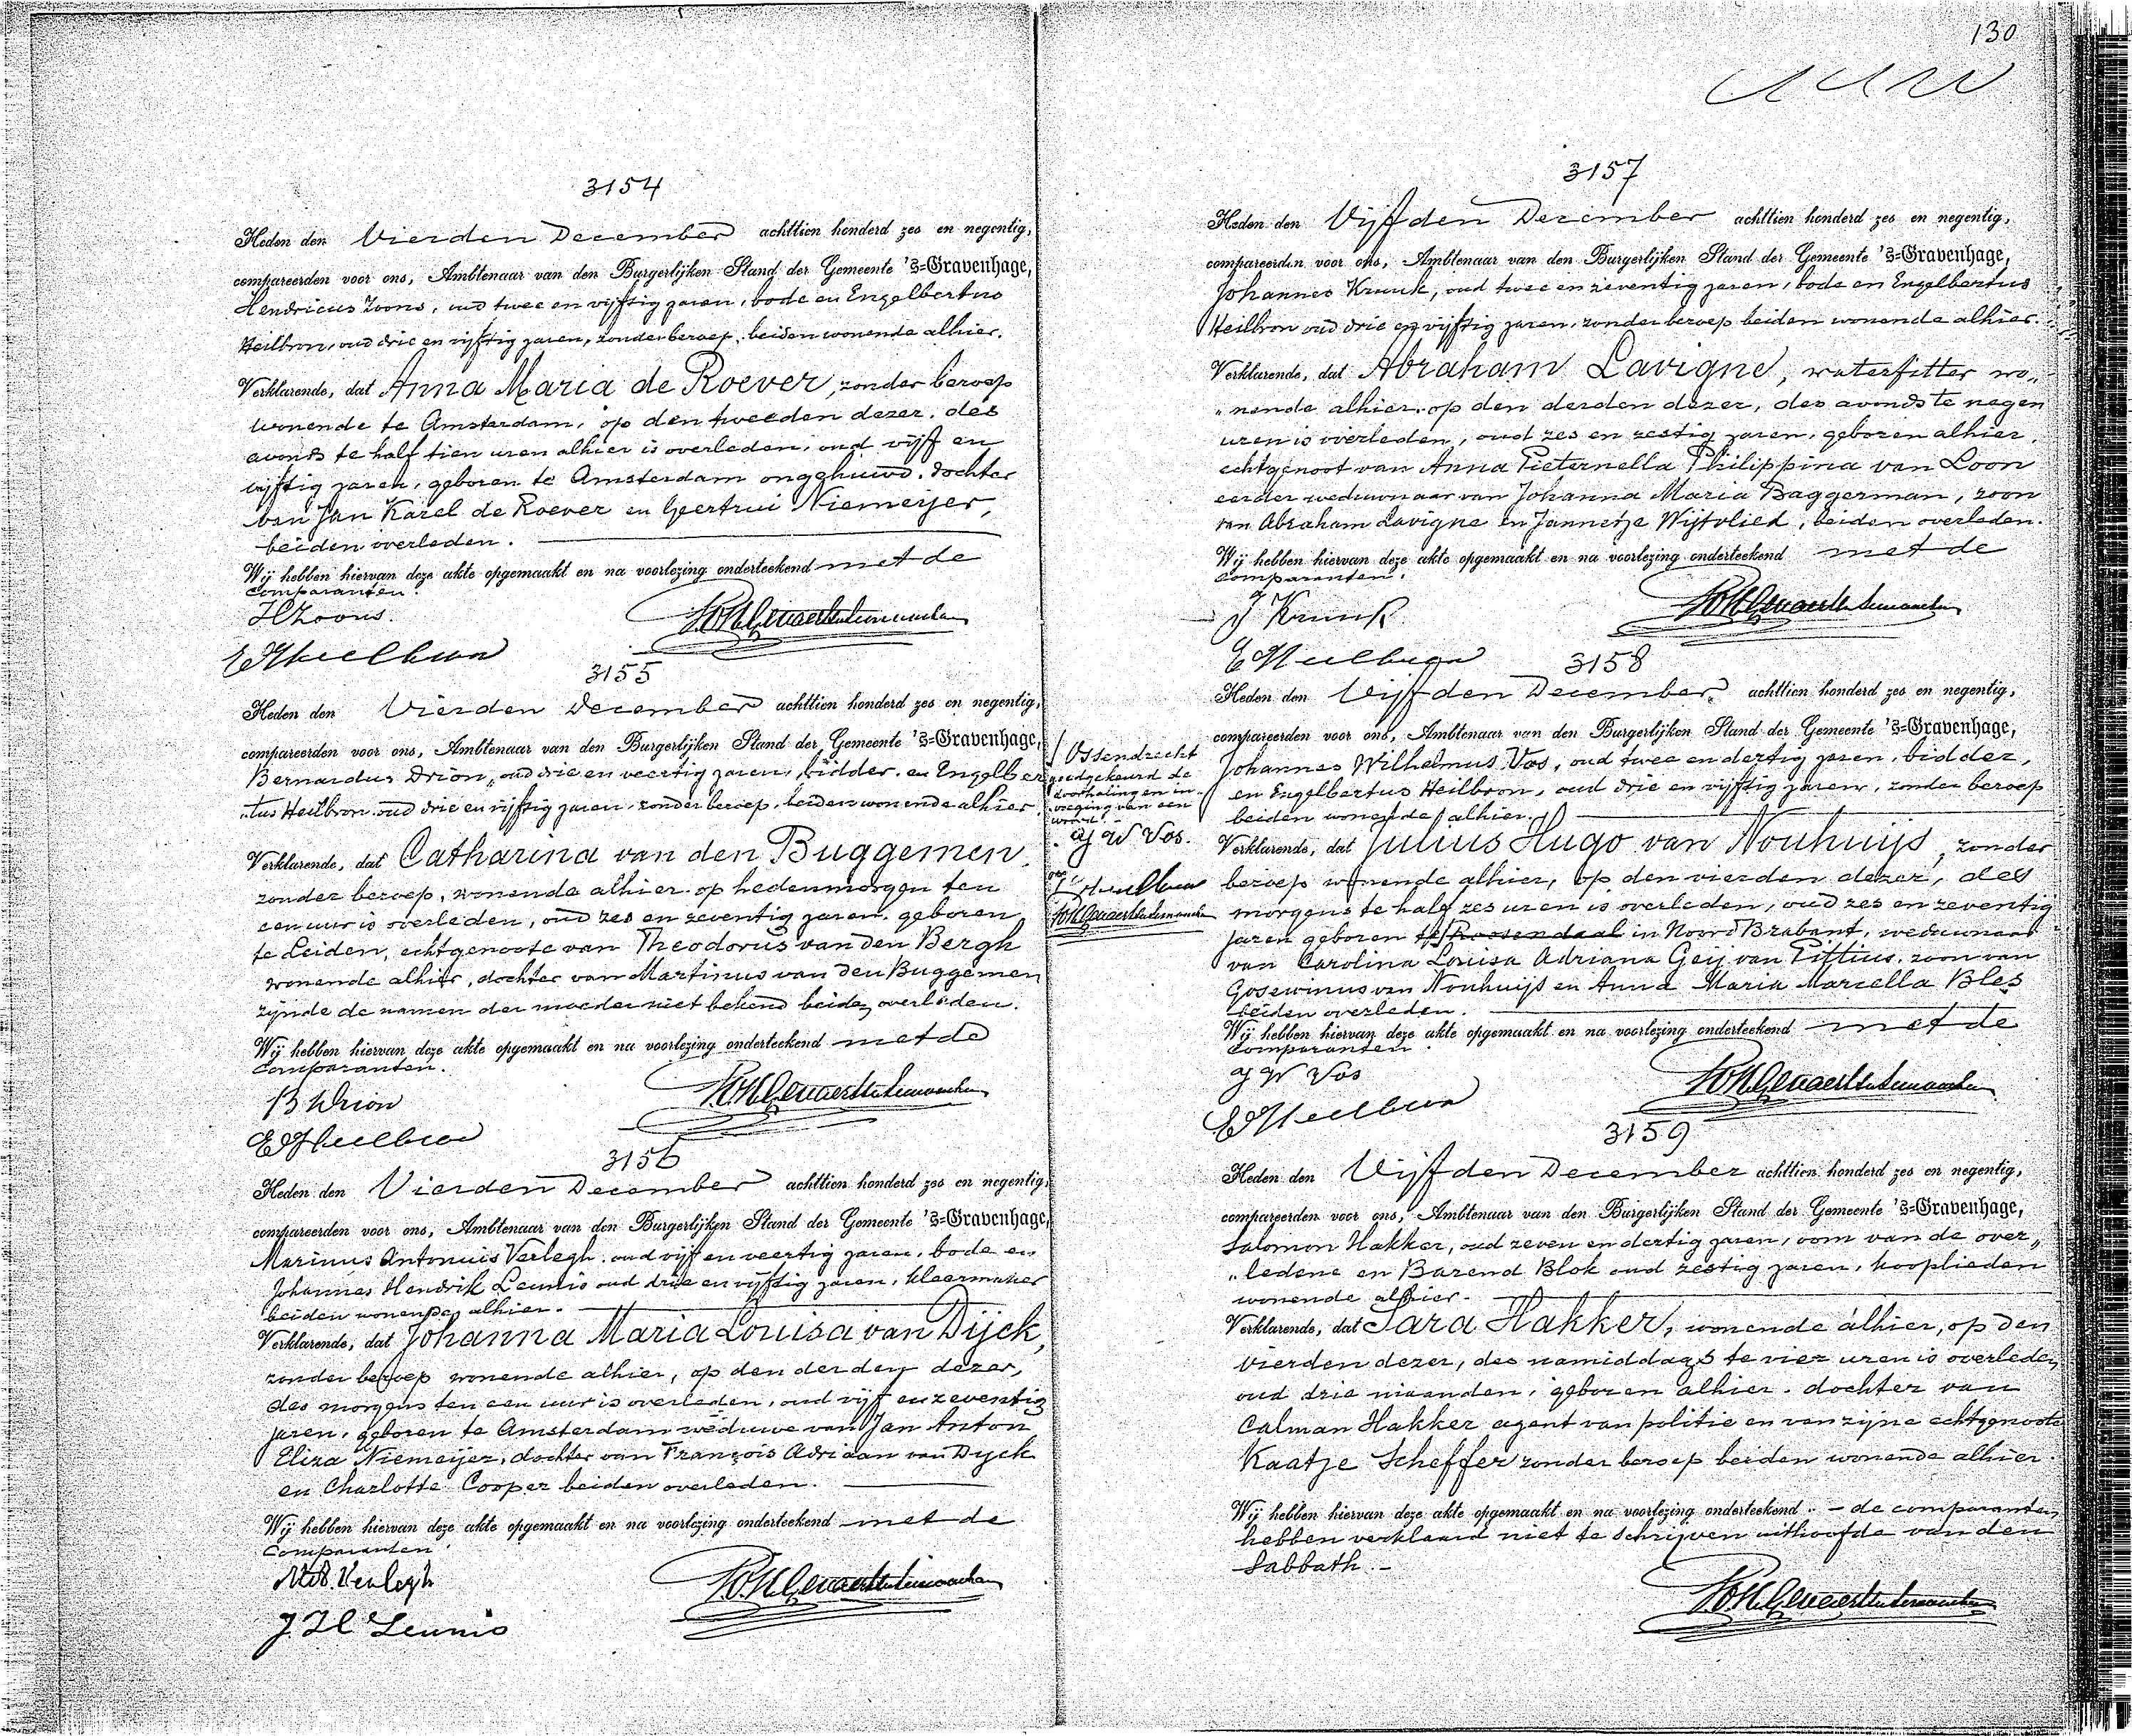 3154
Heden den Vierden December achttien honderd zes en negentig,
compareerden voor ons, Ambtenaar van den Burgerlijken Stand der Gemeente 's-Gravenhage,
Hendricus Zoons, oud twee en vijftig jaren, bode en Engelbertus
Heilbron, oud drie en vijftig jaren, zonder beroep, beiden wonende alhier.
Verklarende, dat Anna Maria de Roever, zonder beroep
wonende te Amsterdam, op den tweeden dezer, des
avonds te half tien uren alhier is overleden, oud vijf en
vijftig jaren, geboren te Amsterdam ongehuwd. dochter
van Jan Karel de Roever en Geertrui Niemeyer,
beiden overleden.
Wij hebben hiervan deze akte opgemaakt en na voorlezing onderteekend met de
comparanten.
H Zoons.
E Heilbron
3155
Heden den Vierden December achttien honderd zes en negentig,
compareerden voor ons, Ambtenaar van den Burgerlijken Stand der Gemeente 's-Gravenhage,
Bernardus Drion, oud drie en veertig jaren, bidder. en Engelber
"tus Heilbron oud drie en vijftig jaren, zonder beroep, beiden wonende alhier
Verklarende, dat Catharina van den Buggemen
zonder beroep, wonende alhier op hedenmorgen ten
een uur is overleden, oud zes en zeventig jaren. geboren
te Leiden, echtgenoote van Theodorus van den Bergh
wonende alhier, dochter van Martinus van den Buggemen
zijnde de namen der moeder niet bekend beiden overleden.
Wij hebben hiervan deze akte opgemaakt en na voorlezing onderteekend met de
comparanten.
B Drion
E Heilbron
3156
Heden den Vierden December achttien honderd zes en negentig,
compareerden voor ons, Ambtenaar van den Burgerlijken Stand der Gemeente 's-Gravenhage,
Marinus Antonius Verlegh oud vijf en veertig jaren, bode en
Johannes Hendrik Leunis oud drie en vijftig jaren, kleermaker
beiden wonende alhier.
Verklarende, dat Johanna Maria Louisa van Dijck,
zonder beroep wonende alhier, op den derden dezer,
des morgens ten een uur is overleden, oud vijf en zeventig
jaren, geboren te Amsterdam weduwe van Jan Anton
Eliza Niemeijer, dochter van François Adriaan van Dyck
en Charlotte Cooper beiden overleden.
Wij hebben hiervan deze akte opgemaakt en na voorlezing onderteekend met de
Comparanten
Verlegh
J. H Leunis
130
3157
Heden den Vijfden December achttien honderd zes en negentig,
compareerden voor ons, Ambtenaar van den Burgerlijken Stand der Gemeente 's-Gravenhage,
Johannes Krunk, oud twee en zeventig jaren, bode en Engelbertus
Heilbron oud drie en vijftig jaren, zonder beroep beiden wonende alhier.
Verklarende, dat Abraham Lavigne, waterfitter wo„
"nende alhier, op den derden dezer, des avonds te negen
uren is overleden, oud zes en zestig jaren, geboren alhier,
echtgenoot van Anna Pieternella Philippina van Loon
eerder weduwnaar van Johanna Maria Baggerman, zoon
van Abraham Lavigne en Jannetje Wijtvlied, beiden overleden.
Wij hebben hiervan deze akte opgemaakt en na voorlezing onderteekend met de
comparanten.
J Krunk
E Heilbron
3158
Heden den Vijfden December achttien honderd zes en negentig,
compareerden voor ons, Ambtenaar van den Burgerlijken Stand der Gemeente 's-Gravenhage,
Johannes Wilhelmus Vos, oud twee en dertig jaren, bidder,
en Engelbertus Heilbron, oud drie en vijftig jaren, zonder beroep
beiden wonende alhier.
Verklarende, dat Julius Hugo van Nouhuijs, zonder
beroep wonende alhier, op den vierden dezer, des
morgens te half zes uren is overleden, oud zes en zeventig
jaren geboren te Roosendaal in Noord Brabant, weduwnaar
van Carolina Louisa Adriana Geij van Pittius, zoon van
Gosewinus van Nouhuijs en Anna Maria Marcella Bles
beiden overleden.
Wij hebben hiervan deze akte opgemaakt en na voorlezing onderteekend met de
Comparanten
J W Vos
E Heilbron
/ Ossendrecht
goedgekeurd de
doorhaling en in-
voeging van een
woord.
J W Vos.
E Heilbron
3159
Heden den Vijfden December achttien honderd zes en negentig,
compareerden voor ons, Ambtenaar van den Burgerlijken Stand der Gemeente 's-Gravenhage,
Salomon Hakker, oud zeven en dertig jaren, oom van de over„
"ledene en Barend Blok oud zestig jaren, kooplieden
wonende alhier.
Verklarende, dat Sara Hakker, wonende alhier, op den
vierden dezer, des namiddags te vier uren is overleden
oud drie maanden, geboren alhier. dochter van
Calman Hakker agent van politie en van zijne echtgenoote
Kaatje Scheffer zonder beroep beiden wonende alhier.
Wij hebben hiervan deze akte opgemaakt en na voorlezing onderteekend. – de comparanten
hebben verklaard niet te schrijven uithoofde van den
Sabbath. –